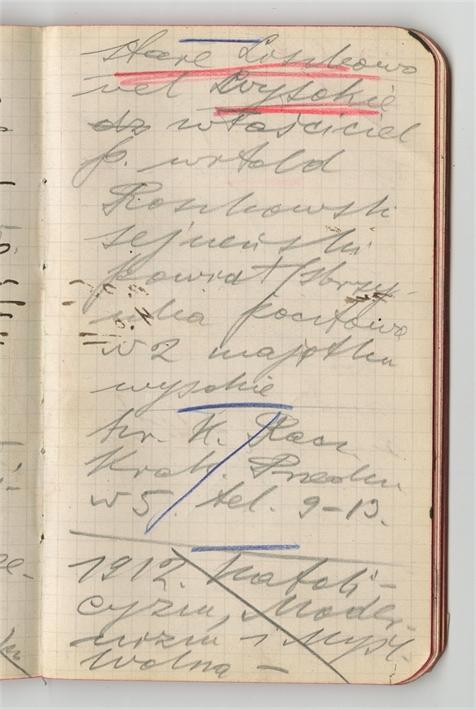 stare Loszkowo
vel Wysokie
dz właściciel
p. witold
Roszkowski
sejneński
powiat/skrzy-
nka pocztowa
w 2 majątku
wysokie
hr. H. Racz
Krak. Przedm
w 5. tel. 9-13.
1912. Katoli-
cyzm, Moder-
nizm i Myśl
wolna —